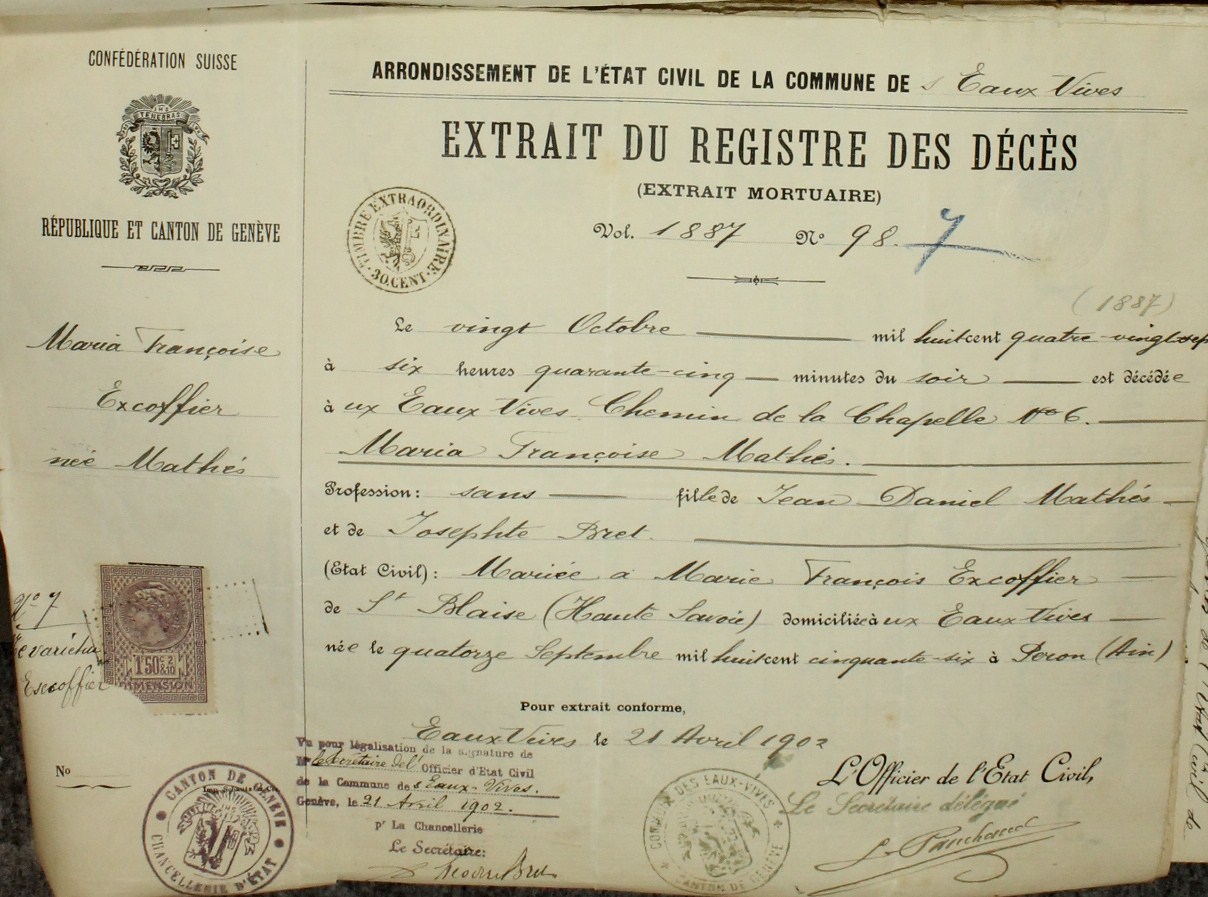 CONFÉDÉRATION SUISSE
POST TENEBRAS
RÉPUBLIQUE ET CANTON DE GENÈVE
Maria Françoise
Excoffier
née Mathés
No 7
Excoffier
1 50c 2/10
DIMENSION
No
CANTON DE GENÈVE
CHANCELLERIE D'ÉTAT
ARRONDISSEMENT DE L'ÉTAT CIVIL DE LA COMMUNE DE s Eaux Vives
EXTRAIT DU REGISTRE DES DÉCÈS
(EXTRAIT MORTUAIRE)
TIMBRE EXTRAORDINAIRE
30 CENT.
Vol. 1887 No 98. 7
(1887)
Le vingt Octobre mil huitcent quatre-vingt-sept
à six heures quarante-cinq minutes du soir est décédée
à ux Eaux Vives. Chemin de la Chapelle No 6.
Maria Françoise Mathés.
Profession: sans fille de Jean Daniel Mathés
et de Josephte Bret.
(Etat Civil): Mariée à Marie François Excoffier
de St Blaise (Haute Savoie) domiciliée à ux Eaux Vives
née le quatorze Septembre mil huitcent cinquante-six à Peron (Ain)
Pour extrait conforme,
Eaux Vives le 21 Avril 1902
Vu pour légalisation de la signature de
Mr le Secrétaire de l'Officier d'Etat Civil
de la Commune de s Eaux-Vives.
Genève, le 21 Avril 1902.
pr La Chancellerie
Le Secrétaire:
COMMUNE DES EAUX-VIVES
CANTON DE GENÈVE
L'Officier de l'Etat Civil,
Le Secrétaire délégué